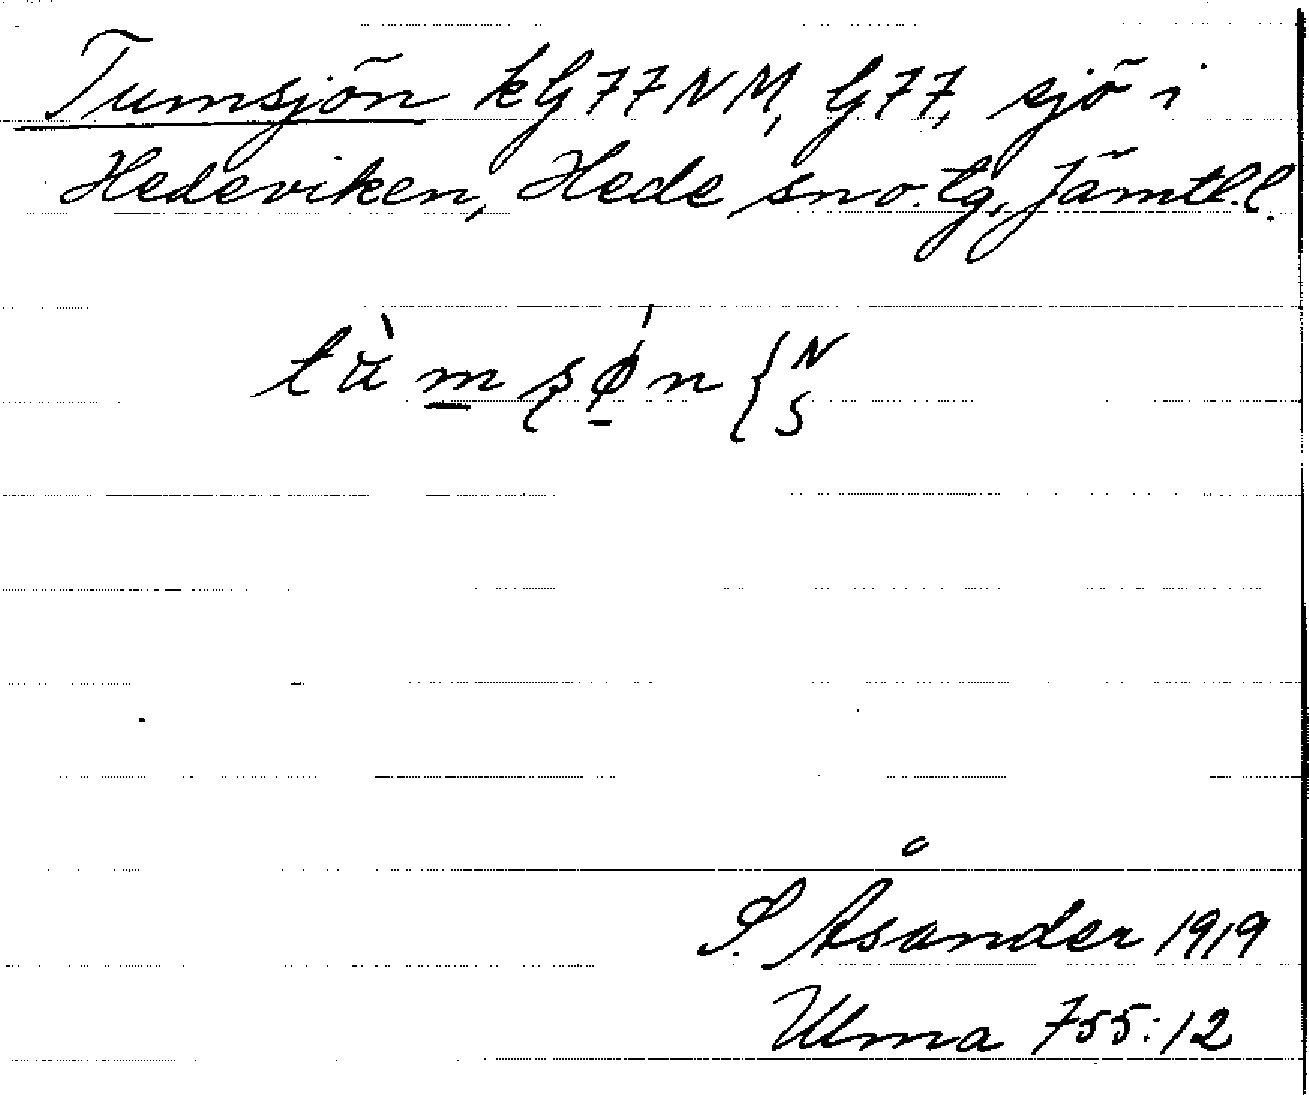 Tumsjön kG77NM, G77, sjö i
Hedeviken, Hede sn o. tg, Jämtl. l.
tùmʂǿn { N
S
S. Åsander 1919
Ulma 755:12